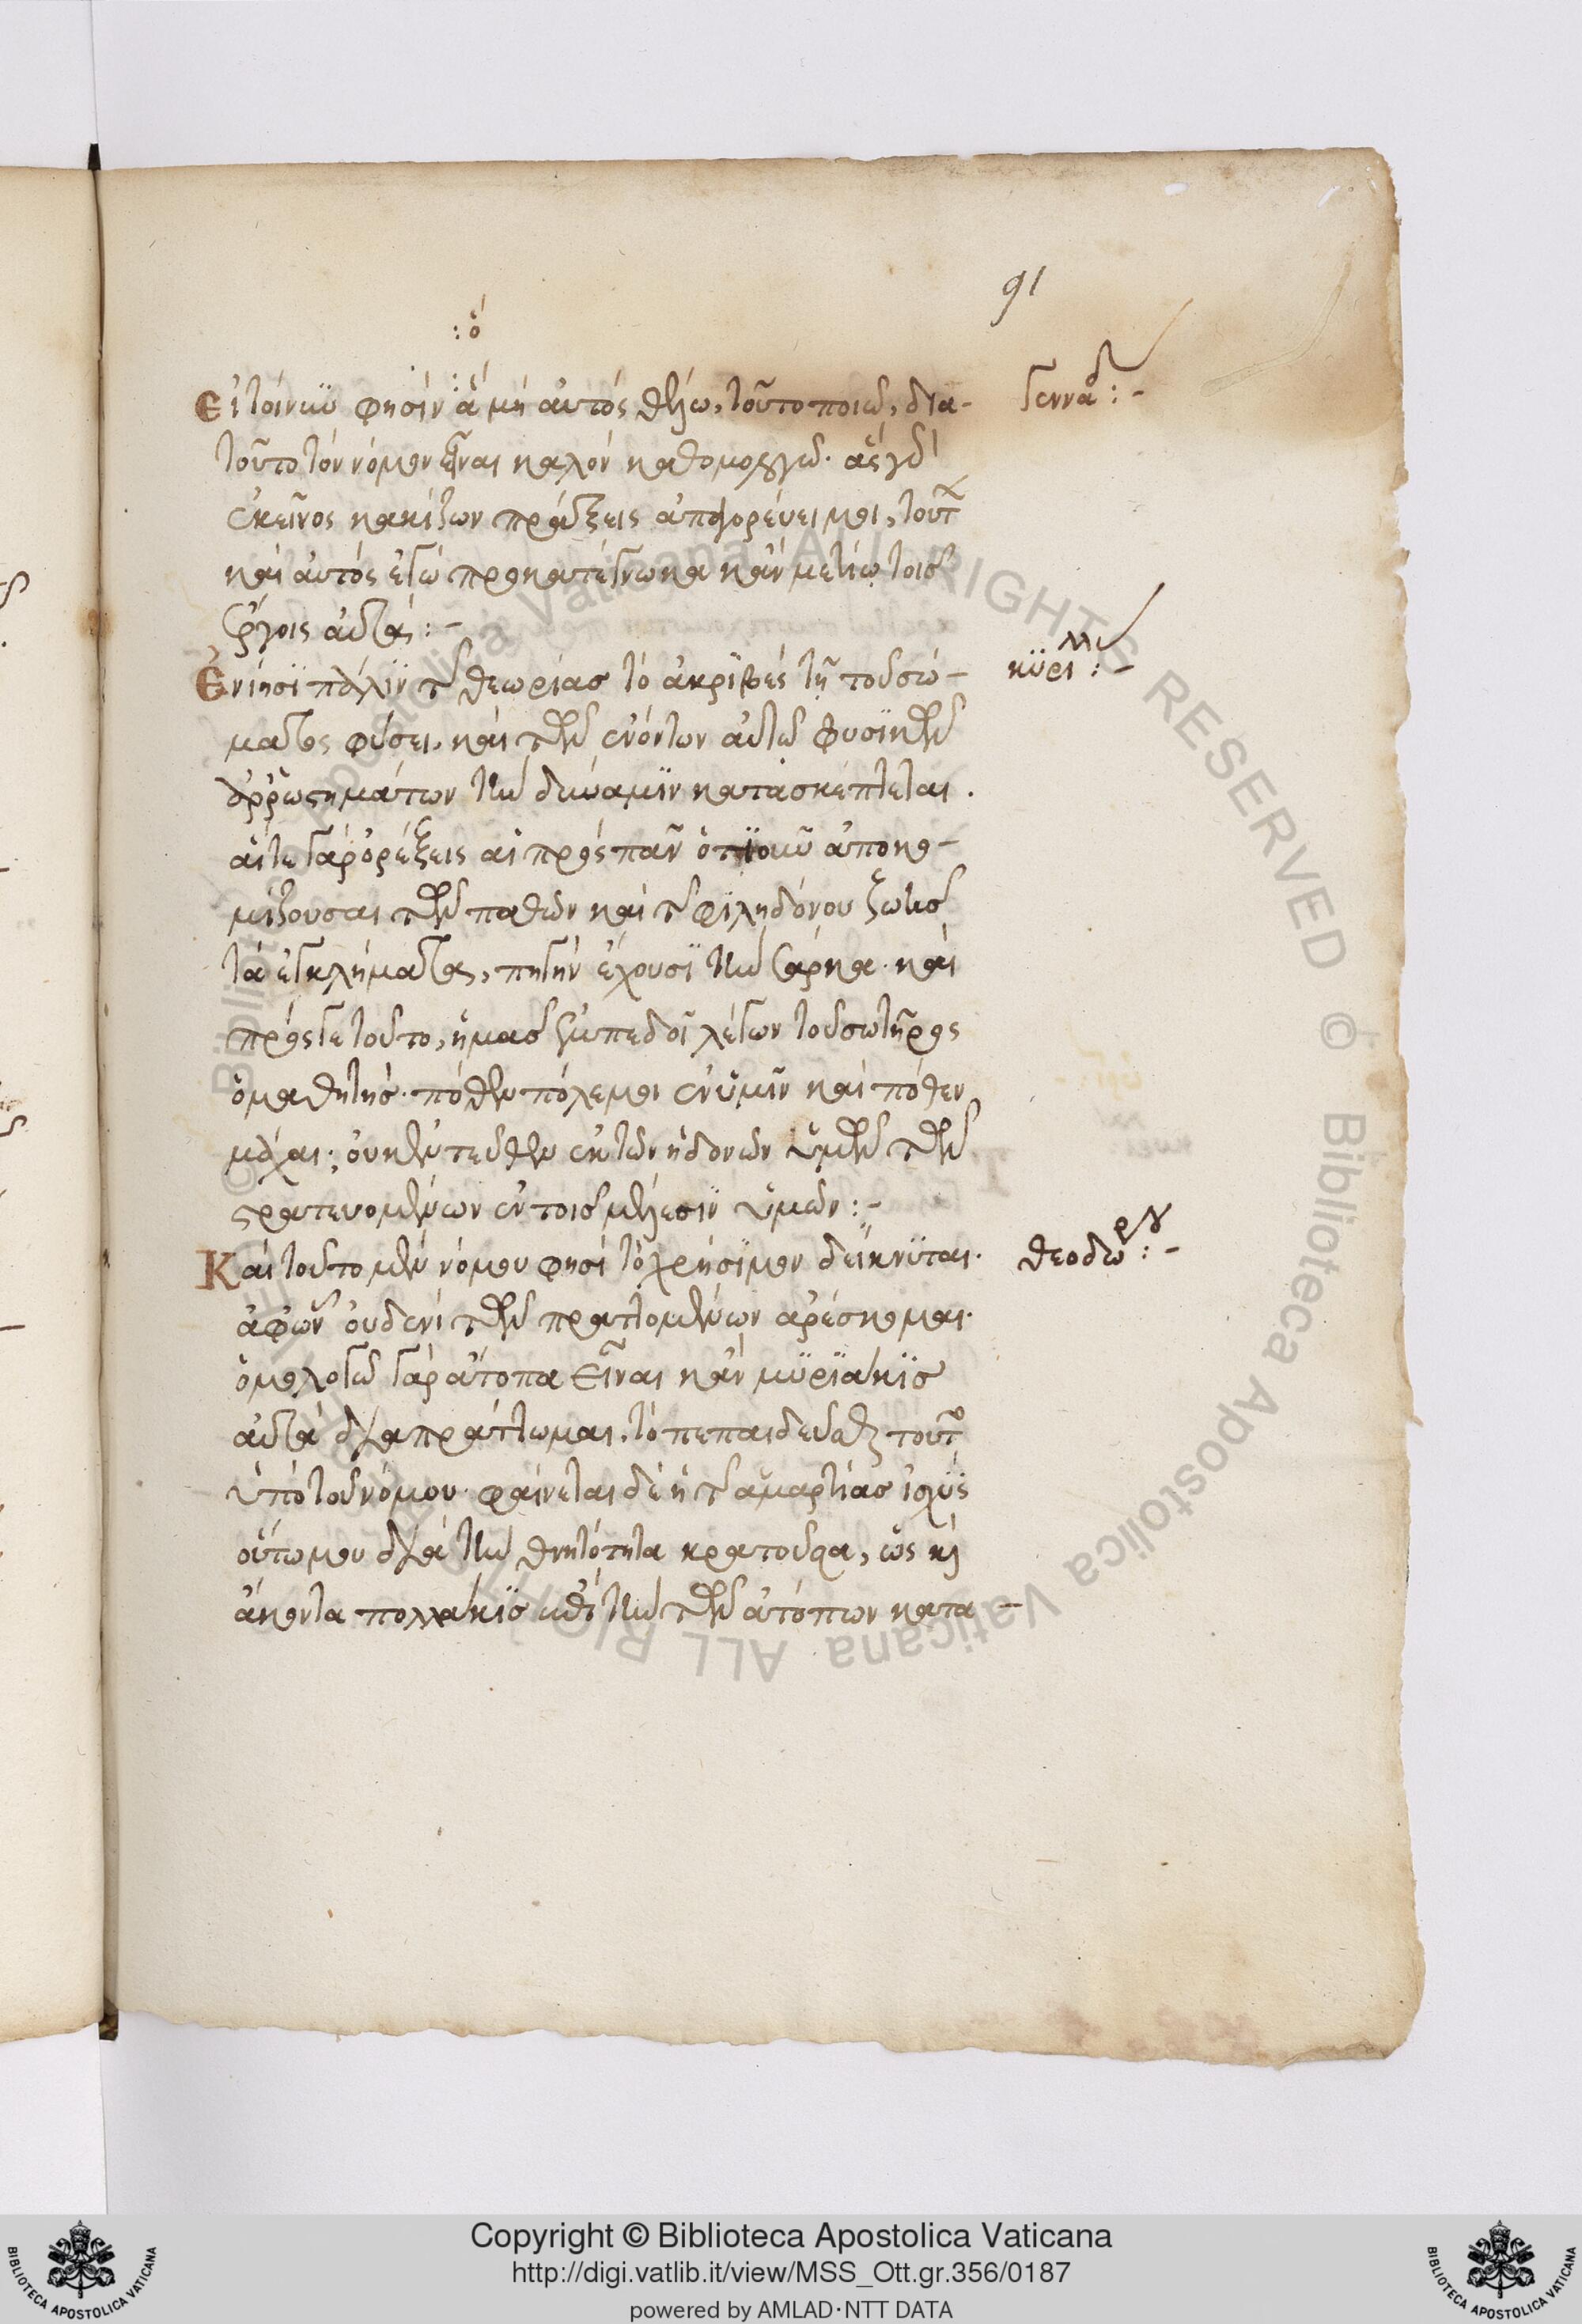 91
: ὅ
Εἰ τοίνυν φησὶν ἃ μὴ αὐτὸς θέλω, τοῦτο ποιῶ, δια-
τοῦτο τὸν νόμον εἶναι καλὸν καθομολογῶ. ἃς γὰρ
ἐκεῖνος κακίζων πράξεις ἀπαγορεύει μοι, τούτ
καὶ αὐτὸς ἐγὼ προκατέγνωκα κἂν μετίω τοῖς
ἔργοις αὐτάς :-
Γενναδ :-
Ἐνίησι πάλιν τῆς θεωρίας τὸ ἀκριβὲς τῇ τοῦ σώ-
ματος φύσει, καὶ τῶν ἐνόντων αὐτῷ φυσικῶν
ἀρρωστημάτων τὴν δύναμιν κατασκέπτεται.
αἵ τε γὰρ ὀρέξεις αἱ πρὸς πᾶν ὁτιοῦν ἀποκο-
μίζουσαι τῶν παθῶν καὶ τῆς φιληδόνου ζωῆς
τὰ ἐγκλήματα, πηγὴν ἔχουσι τὴν σάρκα. καὶ
πρός γε τοῦτο, ἡμᾶς ἐμπεδοῖ λέγων τοῦ σωτῆρος
ὁ μαθητής. πόθεν πόλεμοι ἐν ὑμῖν καὶ πόθεν
μάχαι; οὐκ ἐντεῦθεν ἐκ τῶν ἡδονῶν ὑμῶν τῶν
στρατευομένων ἐν τοῖς μέλεσιν ὑμῶν :-
κυριλλ :-
Καὶ τοῦτο μὲν νόμου φησὶ τὸ χρήσιμον δείκνυται.
ἀφ' ὧν οὐδενὶ τῶν πραττομένων ἀρέσκομαι.
ὁμολογῶ γὰρ ἄτοπα εἶναι κἂν μυριάκις
αὐτὰ διαπράττωμαι, τὸ πεπαιδεῦσθαι τοῦτο
ὑπὸ τοῦ νόμου. φαίνεται δὲ ἡ τῆς ἁμαρτίας ἰσχὺς
οὕτω μου διὰ τὴν θνητότητα κρατοῦσα, ὡς καὶ
ἄκοντα πολλάκις ἐπὶ τὴν τῶν ἀτόπων κατα-
θεοδώρου :-
Copyright © Biblioteca Apostolica Vaticana
http://digi.vatlib.it/view/MSS_Ott.gr.356/0187
powered by AMLAD·NTT DATA
BIBLIOTECA APOSTOLICA VATICANA
BIBLIOTECA APOSTOLICA VATICANA
© Biblioteca Apostolica Vaticana ALL RIGHTS RESERVED © Biblioteca Apostolica Vaticana ALL RIGHTS RESERVED